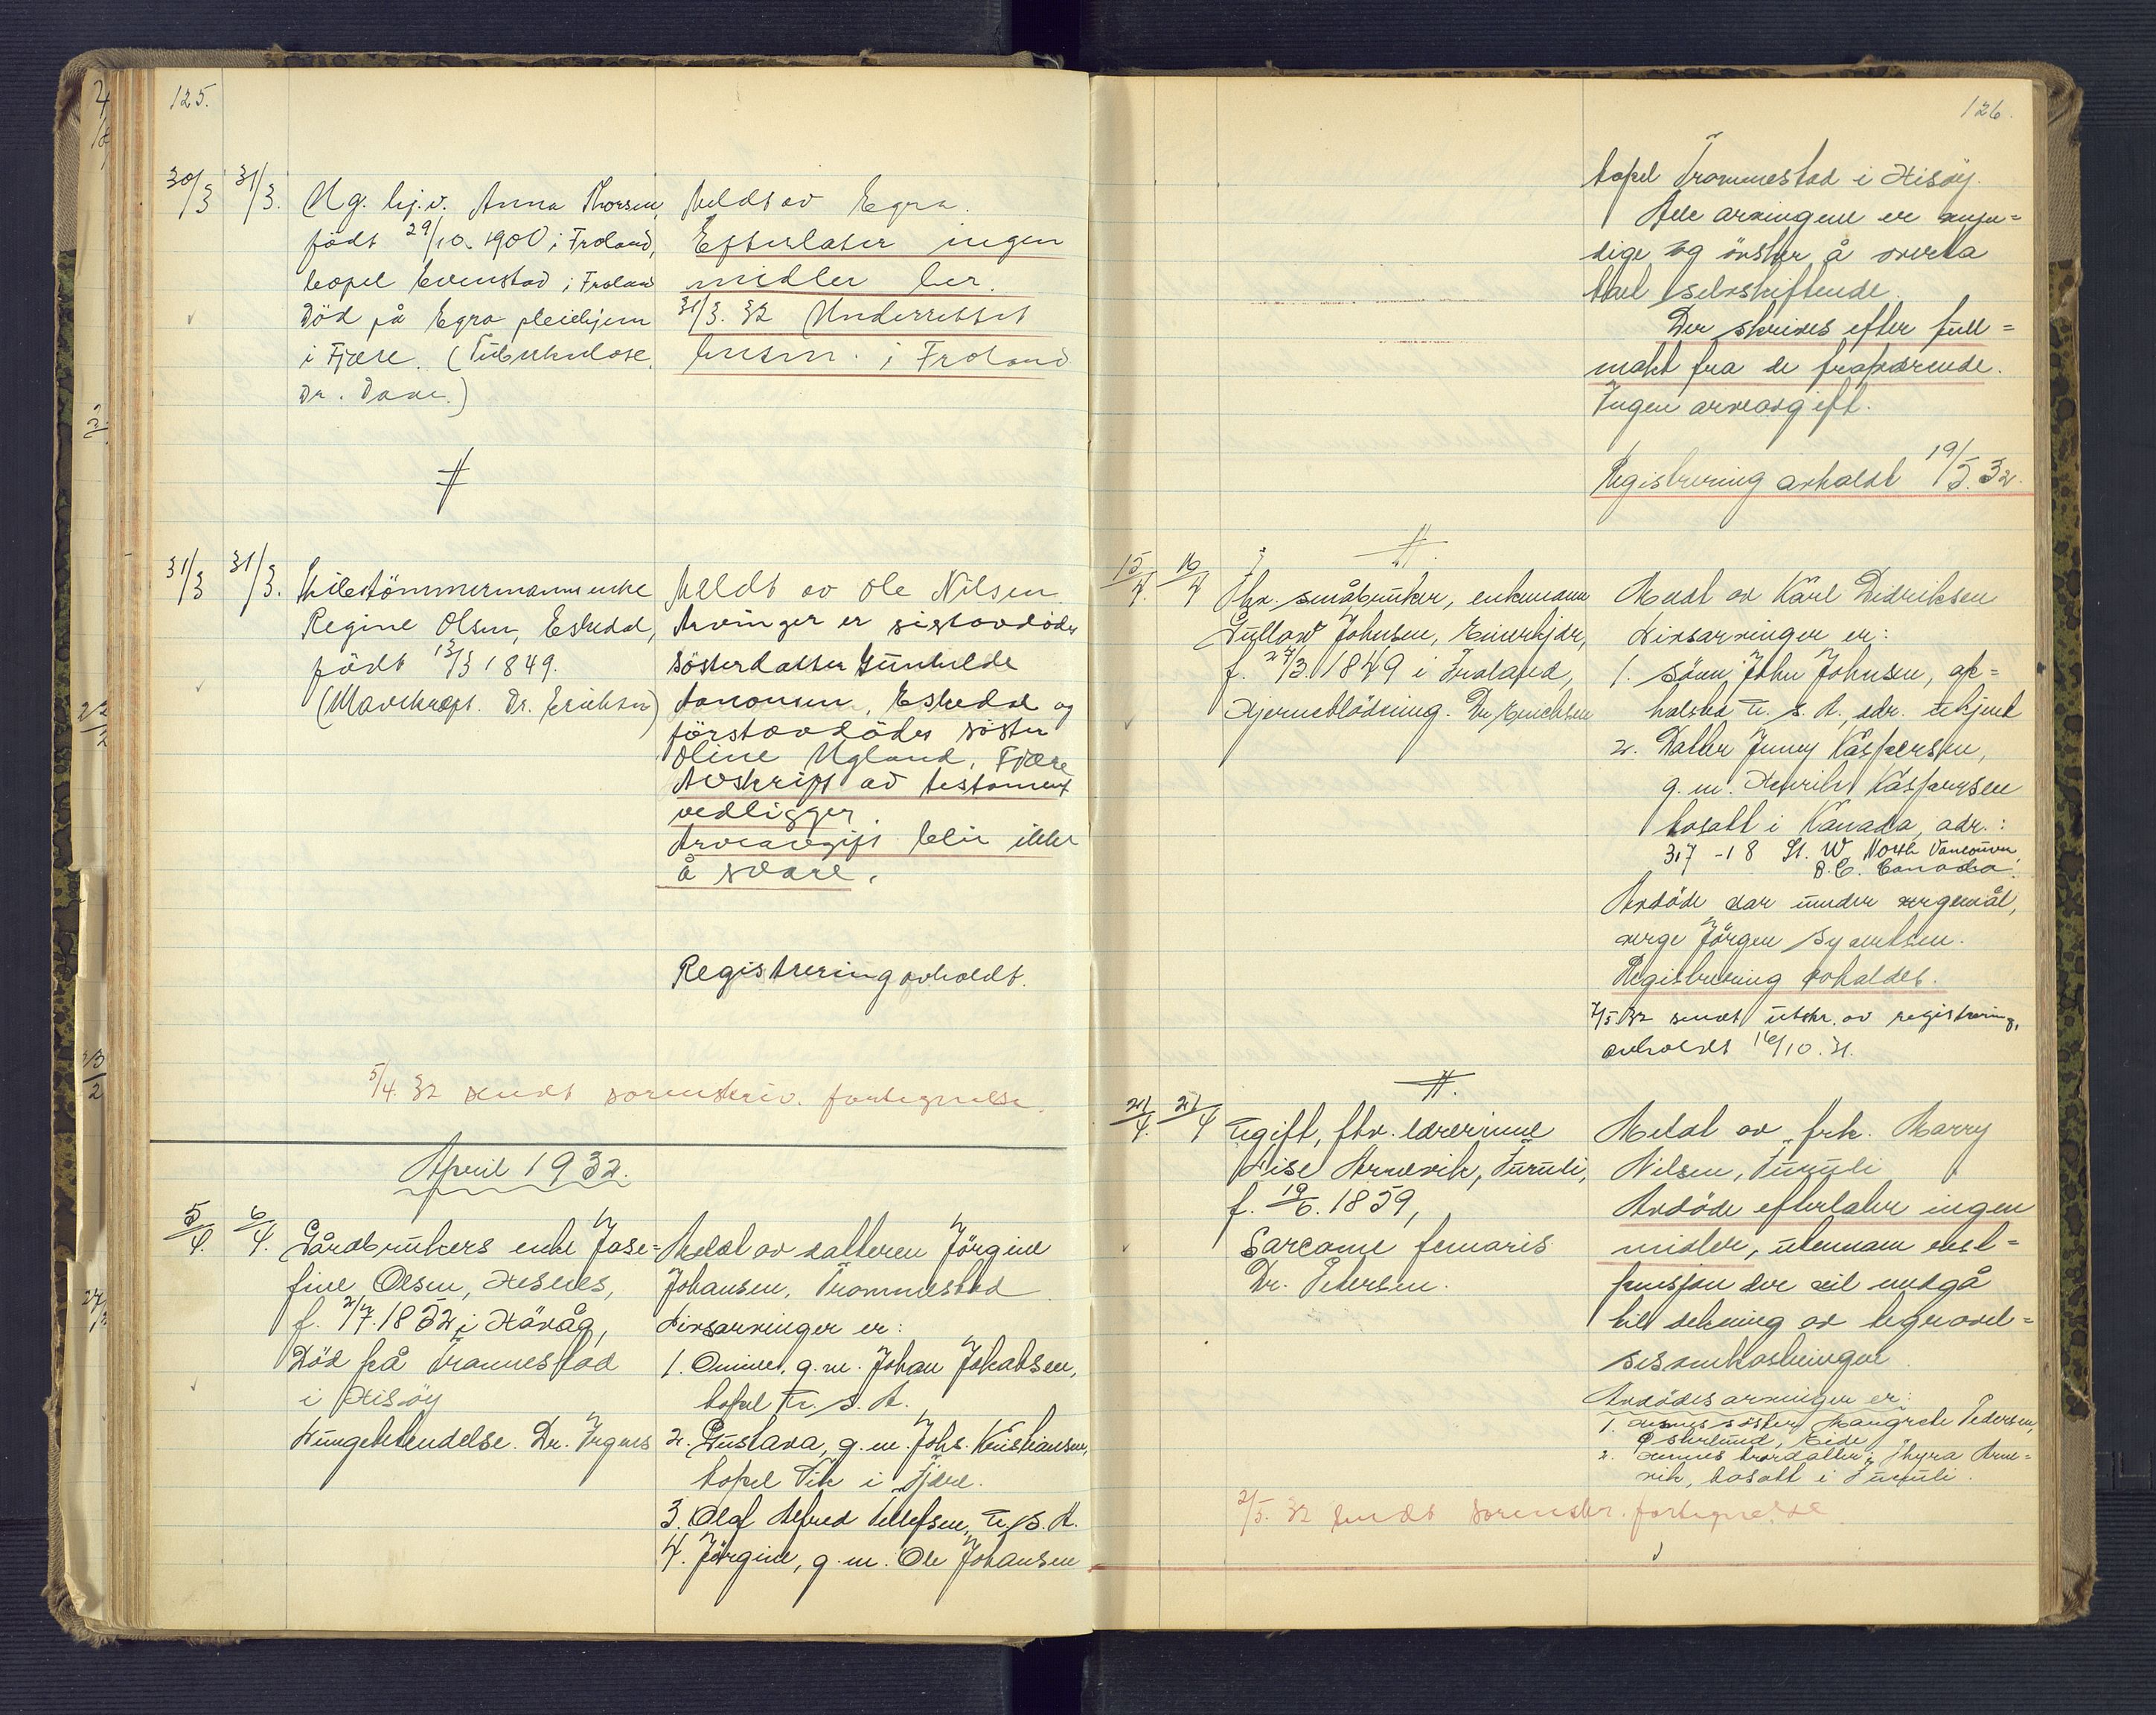 125.
30/3 31/3. Ug. hj.v. Anna Thorsen,
født 29/10. 1900 i Froland,
bopel Evenstad i Froland
Död på Egra pleiehjem
i Fjære. (Tuberkulose.
Dr. )
Meldt av Egra.
Efterlater ingen
midler her.
31/3. 32 Underrettet
lensm. i Froland
31/3 31/3. tömmermannsenke
Regine Olsen, Eskedal,
født 13/3 1849.
(Mavekreft. Dr. Erichsen)
Meldt av Ole Nilsen
Arvinger er sistavdödes
Sösterdatter Gunhilde
Aanonsen, Eskedal og
förstavdödes söster
Oline Ugland, Fjære
Avskrift av testament
vedligger.
Arveavgift blir ikke
å svare.
Registrering avholdt.
5/4. 32 sendt sorenskriv. fortegnelse.
April 1932.
5/4. 6/4. Gårdbrukers enke Jose=
fine Olsen, Hesnes,
f. 2/7. 1852 i Hövåg,
Död på Trommestad
i Hisöy
Lungebetendelse. Dr.
Meldt av datteren Jörgine
Johansen, Trommestad
Livsarvinger er:
1. g. m. Johan Jakobsen,
bopel U. S. A.
2. Gustava, g. m. Johs. Kristiansen,
bopel Vik i Fjære.
3. Olaf Alfred Tellefsen, U. S. A.
4. Jörgine, g. m. Ole Johansen
126.
bopel Trommestad i Hisöy.
Alle arvingene er myn=
dige og önsker å overta
boet selvskiftende.
Der skrives efter full=
makt fra de fraværende.
Ingen arveavgift.
Registrering avholdt 19/5. 32.
15/4. 16/4 Fhv. småbruker, enkemann
Gullow Johnsen, Einerkjær,
f. 27/3. 1849 i Froland,
Hjerneblödning. Dr. Erichsen
Meldt av Karl Didriksen
Livsarvinger er:
1. Sönn John Johnsen, op=
holdsted U. S. A., adr. ukjent
2. Datter Jenny Kaspersen,
g. m. Henrik Kaspersen
bosatt i Kanada, adr.:
317 - 18 St. W. North Vancouver,
B. C. Canada.
Avdöde var under vergemål,
verge Jörgen Syvertsen.
Registrering avholdes.
7/5 32 sendt utskr. av registrering,
avholdt 16/10. 31.
21/4. 21/4 Ugift, fhv. lærerinne
Lise Arnevik, Furuli,
f. 19/6. 1859,
Sarcome femoris
Dr. Pedersen.
Meldt av frk. Marry
Nilsen, Furuli
Avdöde efterlater ingen
midler, utennom rest=
pensjon der vil medgå
til dekning av begravel=
sesomkostningene.
Avdödes arvinger er:
1. dennes söster Pedersen,
Österlund, Eide
2. dennes brordatter, Thyra Arne=
vik, bosatt i Furuli.
2/5. 32 sendt sorenskr. fortegnelse